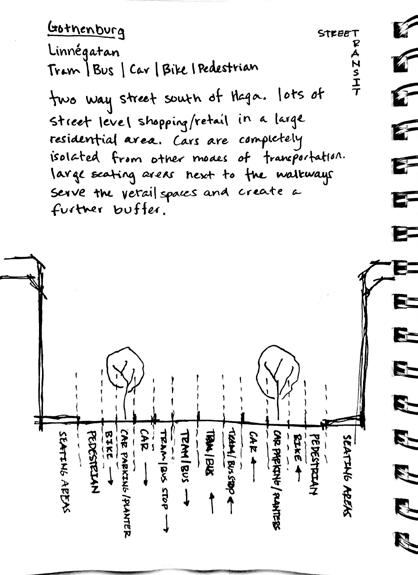 Gothenburg
STREET
TRANSIT
Linnégatan
Tram | Bus | Car | Bike | Pedestrian
two way street south of Haga. lots of
street level shopping/retail in a large
residential area. Cars are completely
isolated from other modes of transportation.
large seating areas next to the walkways
serve the retail spaces and create a
further buffer.
SEATING AREAS
PEDESTRIAN
BIKE →
CAR PARKING/PLANTER
CAR →
TRAM/BUS STOP →
TRAM/BUS →
TRAM/BUS ←
TRAM/BUS STOP ←
CAR ←
CAR PARKING/PLANTERS
BIKE ←
PEDESTRIAN
SEATING AREAS